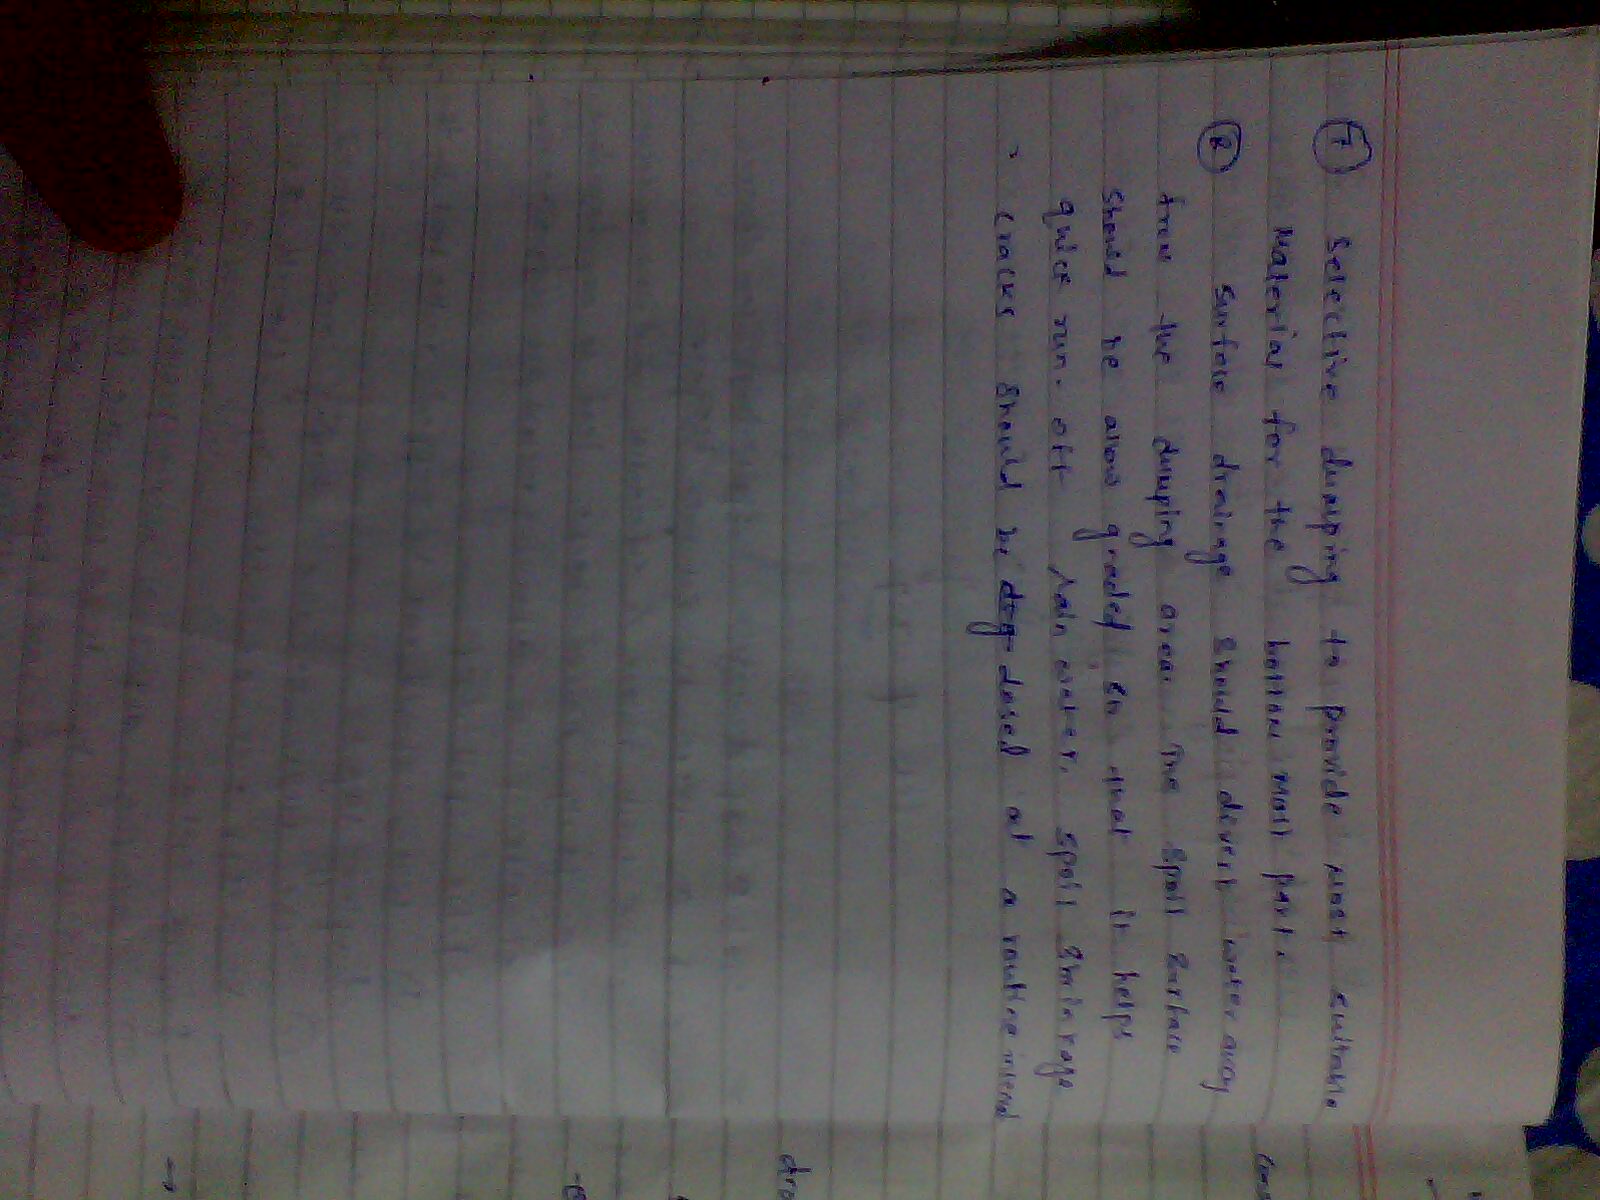 7 Selective dumping to provide most suitable
Material for the bottom most part.
8 Surface drainage should divert water away
from the dumping area. The spoil surface
should be also graded so that it helps
quick run-off rain water. Spoil shrinkage
cracks should be closed at a routine